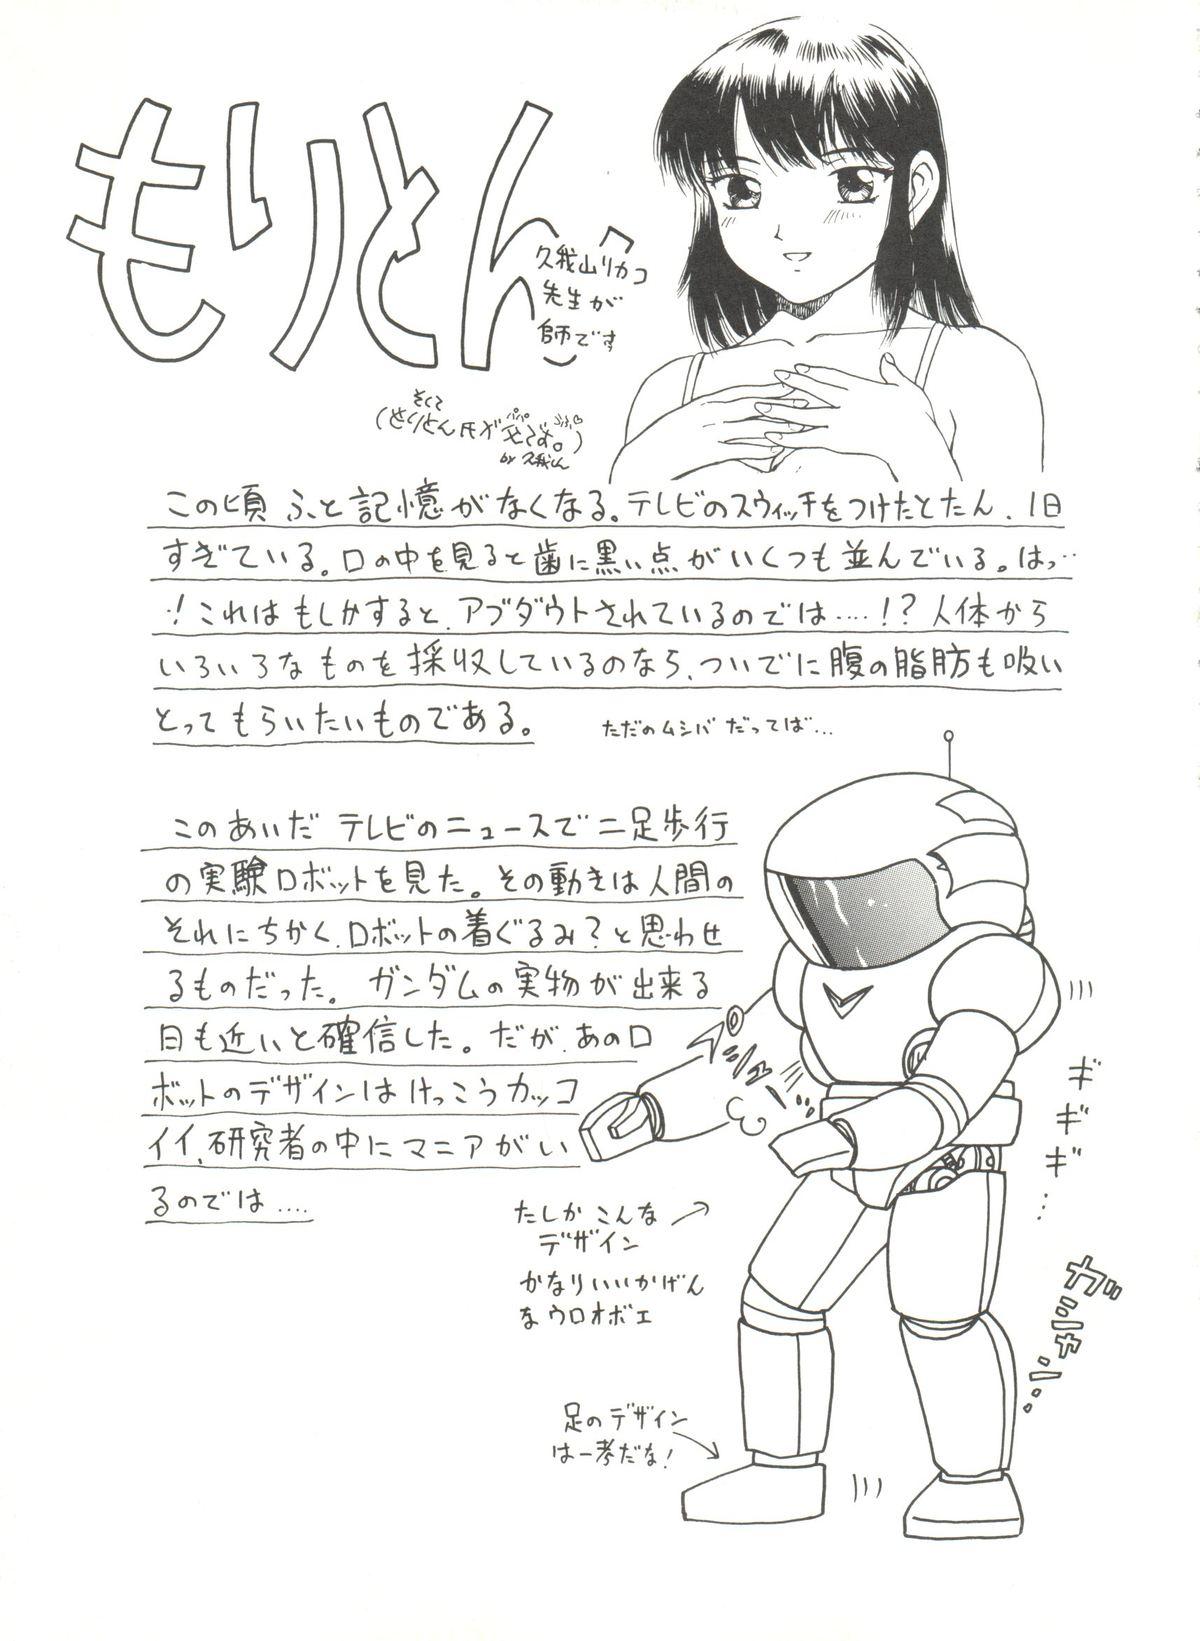 もりとん
久我山リカコ
先生が
師です
そして
(もりとん氏がパパです。)
by 久我くん
この頃ふと記憶がなくなる。テレビのスウィッチをつけたとたん、1日
すぎている。口の中を見ると歯に黒い点がいくつも並んでいる。はっ‥
‥!これはもしかすると、アブダウトされているのでは……!?人体から
いろいろなものを採収しているのなら、ついでに腹の脂肪も吸い
とってもらいたいものである。
ただのムシバだってば…
このあいだテレビのニュースで二足歩行
の実験ロボットを見た。その動きは人間の
それにちかく、ロボットの着ぐるみ?と思わせ
るものだった。ガンダムの実物が出来る
日も近いと確信した。だが、あのロ
ボットのデザインはけっこうカッコ
イイ、研究者の中にマニアがい
るのでは‥‥
ギ
ギ
ギ…
たしかこんな
デザイン
かなりいいかげん
なウロオボエ
ガシャン‥
足のデザイン
は一考だな!